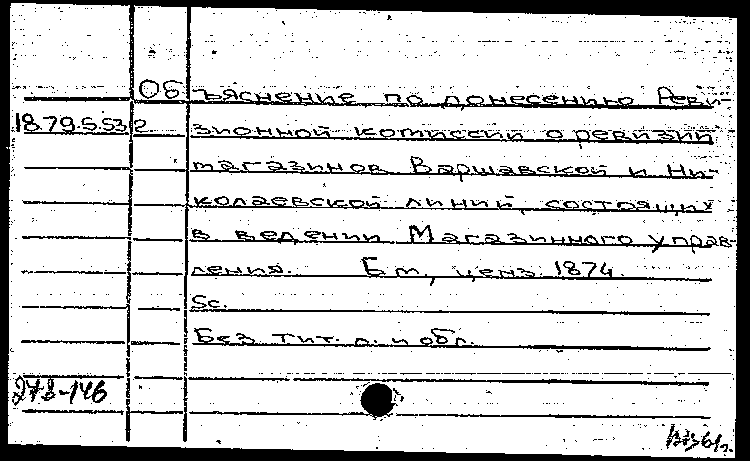 Объяснение по донесению Реви-
18.79.5.532 зионной комиссии о ревизии
магазинов Варшавской и Ни-
колаевской линий, состоящих
в ведении Магазинного управ-
ления. Б.м., ценз. 1874.
5с.
Без тит. л. и обл.
278-146